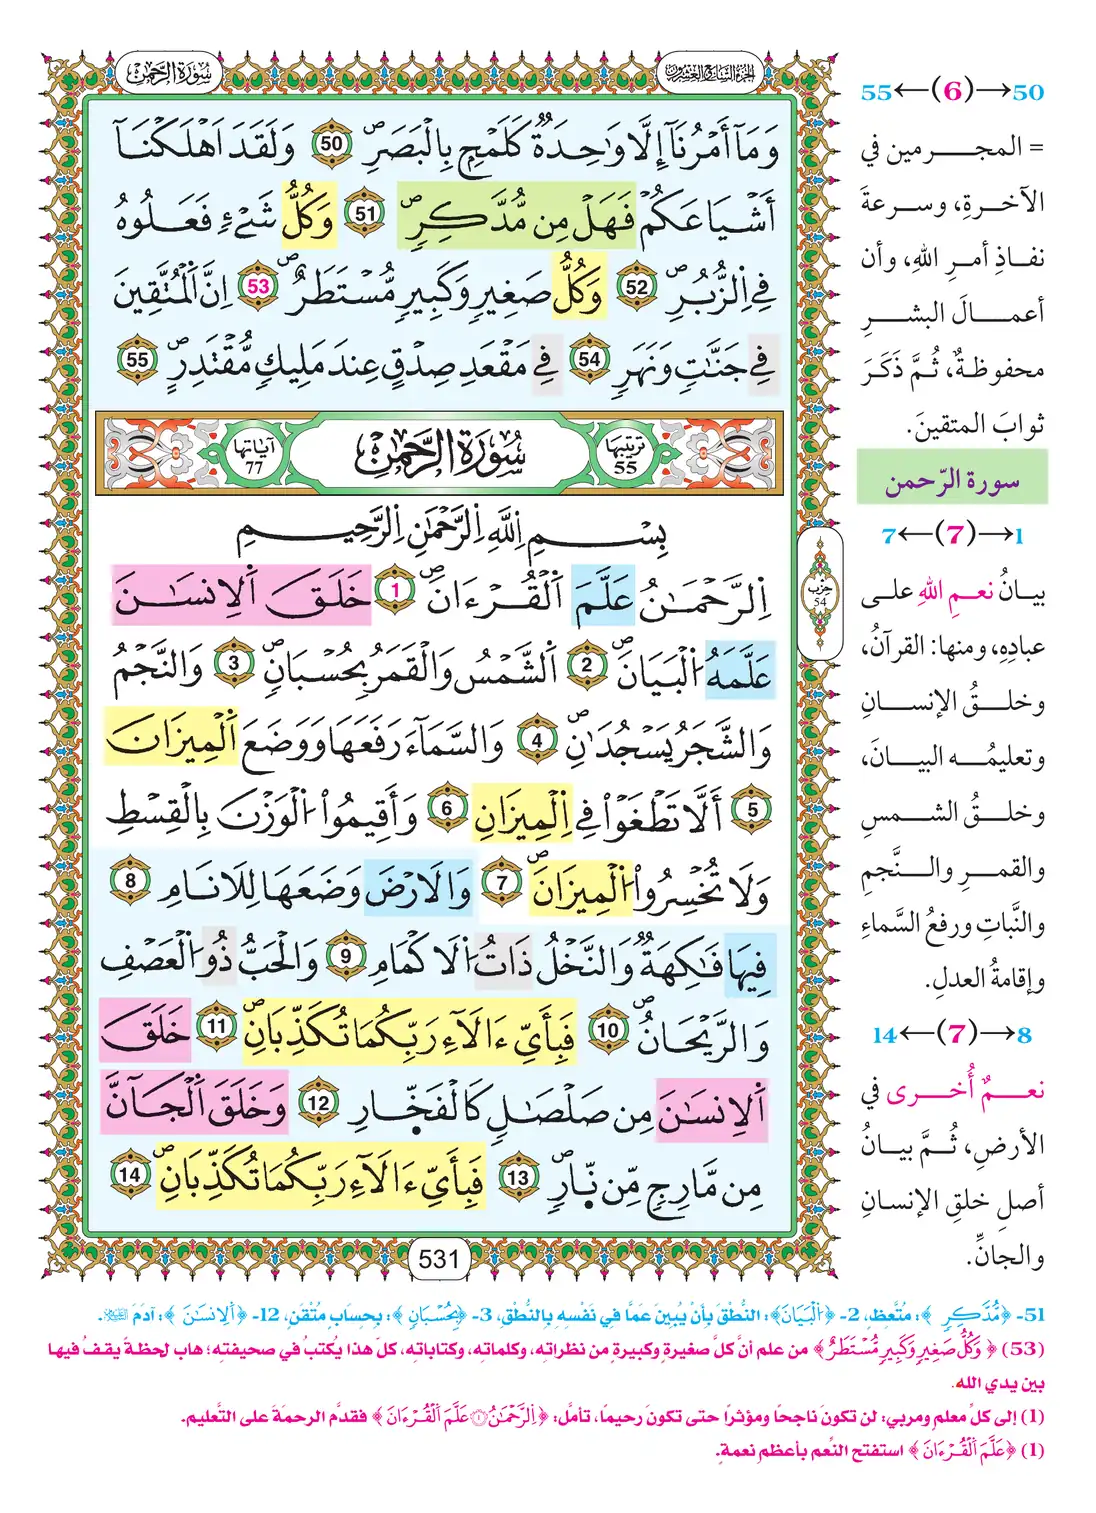 سُورَةُ الرَّحْمٰن
الجزء السابع والعشرون
وَمَآ أَمْرُنَآ إِلَّا وَٰحِدَةٌ كَلَمْحِۭ بِالْبَصَرِ 50 وَلَقَدَ اَهْلَكْنَآ
أَشْيَاعَكُمْ فَهَلْ مِن مُّدَّكِرٍ 51 وَكُلُّ شَےْءٖ فَعَلُوهُ
فِے اِ۬لزُّبُرِ 52 وَكُلُّ صَغِيرٖ وَكَبِيرٖ مُّسْتَطَرٌ 53 اِنَّ اَ۬لْمُتَّقِينَ
فِے جَنَّٰتٖ وَنَهَرٖ 54 فِے مَقْعَدِ صِدْقٍ عِندَ مَلِيكٖ مُّقْتَدِرٍ 55
ترتيبها 55 سُورَةُ الرَّحْمٰن آياتها 77
بِسْمِ اِ۬للَّهِ اِ۬لرَّحْمَٰنِ اِ۬لرَّحِيمِ
اِ۬لرَّحْمَٰنُ عَلَّمَ اَ۬لْقُرْءَانَ 1 خَلَقَ اَ۬لِانسَٰنَ
عَلَّمَهُ اُ۬لْبَيَانَ 2 اَ۬لشَّمْسُ وَالْقَمَرُ بِحُسْبَانٖ 3 وَالنَّجْمُ
وَالشَّجَرُ يَسْجُدَٰنِ 4 وَالسَّمَآءَ رَفَعَهَا وَوَضَعَ اَ۬لْمِيزَانَ
5 أَلَّا تَطْغَوْاْ فِے اِ۬لْمِيزَانِ 6 وَأَقِيمُواْ اُ۬لْوَزْنَ بِالْقِسْطِ
وَلَا تُخْسِرُواْ اُ۬لْمِيزَانَ 7 وَالَارْضَ وَضَعَهَا لِلَانَامِ 8
فِيهَا فَٰكِهَةٞ وَالنَّخْلُ ذَاتُ اُ۬لَاكْمَامِ 9 وَالْحَبُّ ذُو اُ۬لْعَصْفِ
وَالرَّيْحَانُ 10 فَبِأَيِّ ءَالَآءِ رَبِّكُمَا تُكَذِّبَانِ 11 خَلَقَ
اَ۬لِانسَٰنَ مِن صَلْصَٰلٖ كَالْفَخّ۪ارِ 12 وَخَلَقَ اَ۬لْجَآنَّ
مِن مَّارِجٖ مِّن نّ۪ارٖ 13 فَبِأَيِّ ءَالَآءِ رَبِّكُمَا تُكَذِّبَانِ 14
حزب
54
531
50→(6)←55
= المجرمين في
الآخرةِ، وسرعةَ
نفاذِ أمرِ اللهِ، وأن
أعمالَ البشرِ
محفوظةٌ، ثُمَّ ذَكَرَ
ثوابَ المتقينَ.
سورة الرّحمن
1→(7)←7
بيانُ نعمِ اللهِ على
عبادِهِ، ومنها: القرآنُ،
وخلقُ الإنسانِ
وتعليمُه البيانَ،
وخلقُ الشمسِ
والقمرِ والنَّجمِ
والنَّباتِ ورفعُ السَّماءِ
وإقامةُ العدلِ.
8→(7)←14
نعمٌ أُخرى في
الأرضِ، ثُمَّ بيانُ
أصلِ خلقِ الإنسانِ
والجانِّ.
51- ﴿مُّدَّكِرٍ﴾: مُتَّعِظٍ، 2- ﴿اُ۬لْبَيَانَ﴾: النُّطْقَ بِأَنْ يُبِينَ عَمَّا في نَفْسِه بِالنُّطْقِ، 3- ﴿بِحُسْبَانٖ﴾: بِحِسَابٍ مُتْقَنٍ، 12- ﴿اَ۬لِانسَٰنَ﴾: آدَمَ عليه السلام.
(53) ﴿وَكُلُّ صَغِيرٖ وَكَبِيرٖ مُّسْتَطَرٌ﴾ من علم أنَّ كلَّ صغيرةٍ وكبيرةٍ من نظراته، وكلماته، وكتاباته، كلّ هذا يُكتبُ في صحيفته؛ هاب لحظةً يقفُ فيها
بين يدي الله.
(1) إلى كلِّ معلمٍ ومربي: لن تكونَ ناجحًا ومؤثرًا حتى تكونَ رحيمًا، تأمَّل: ﴿اِ۬لرَّحْمَٰنُ ۝١ عَلَّمَ اَ۬لْقُرْءَانَ﴾ فقدَّم الرحمةَ على التَّعليم.
(1) ﴿عَلَّمَ اَ۬لْقُرْءَانَ﴾ استفتح النِّعم بأعظمِ نعمةٍ.